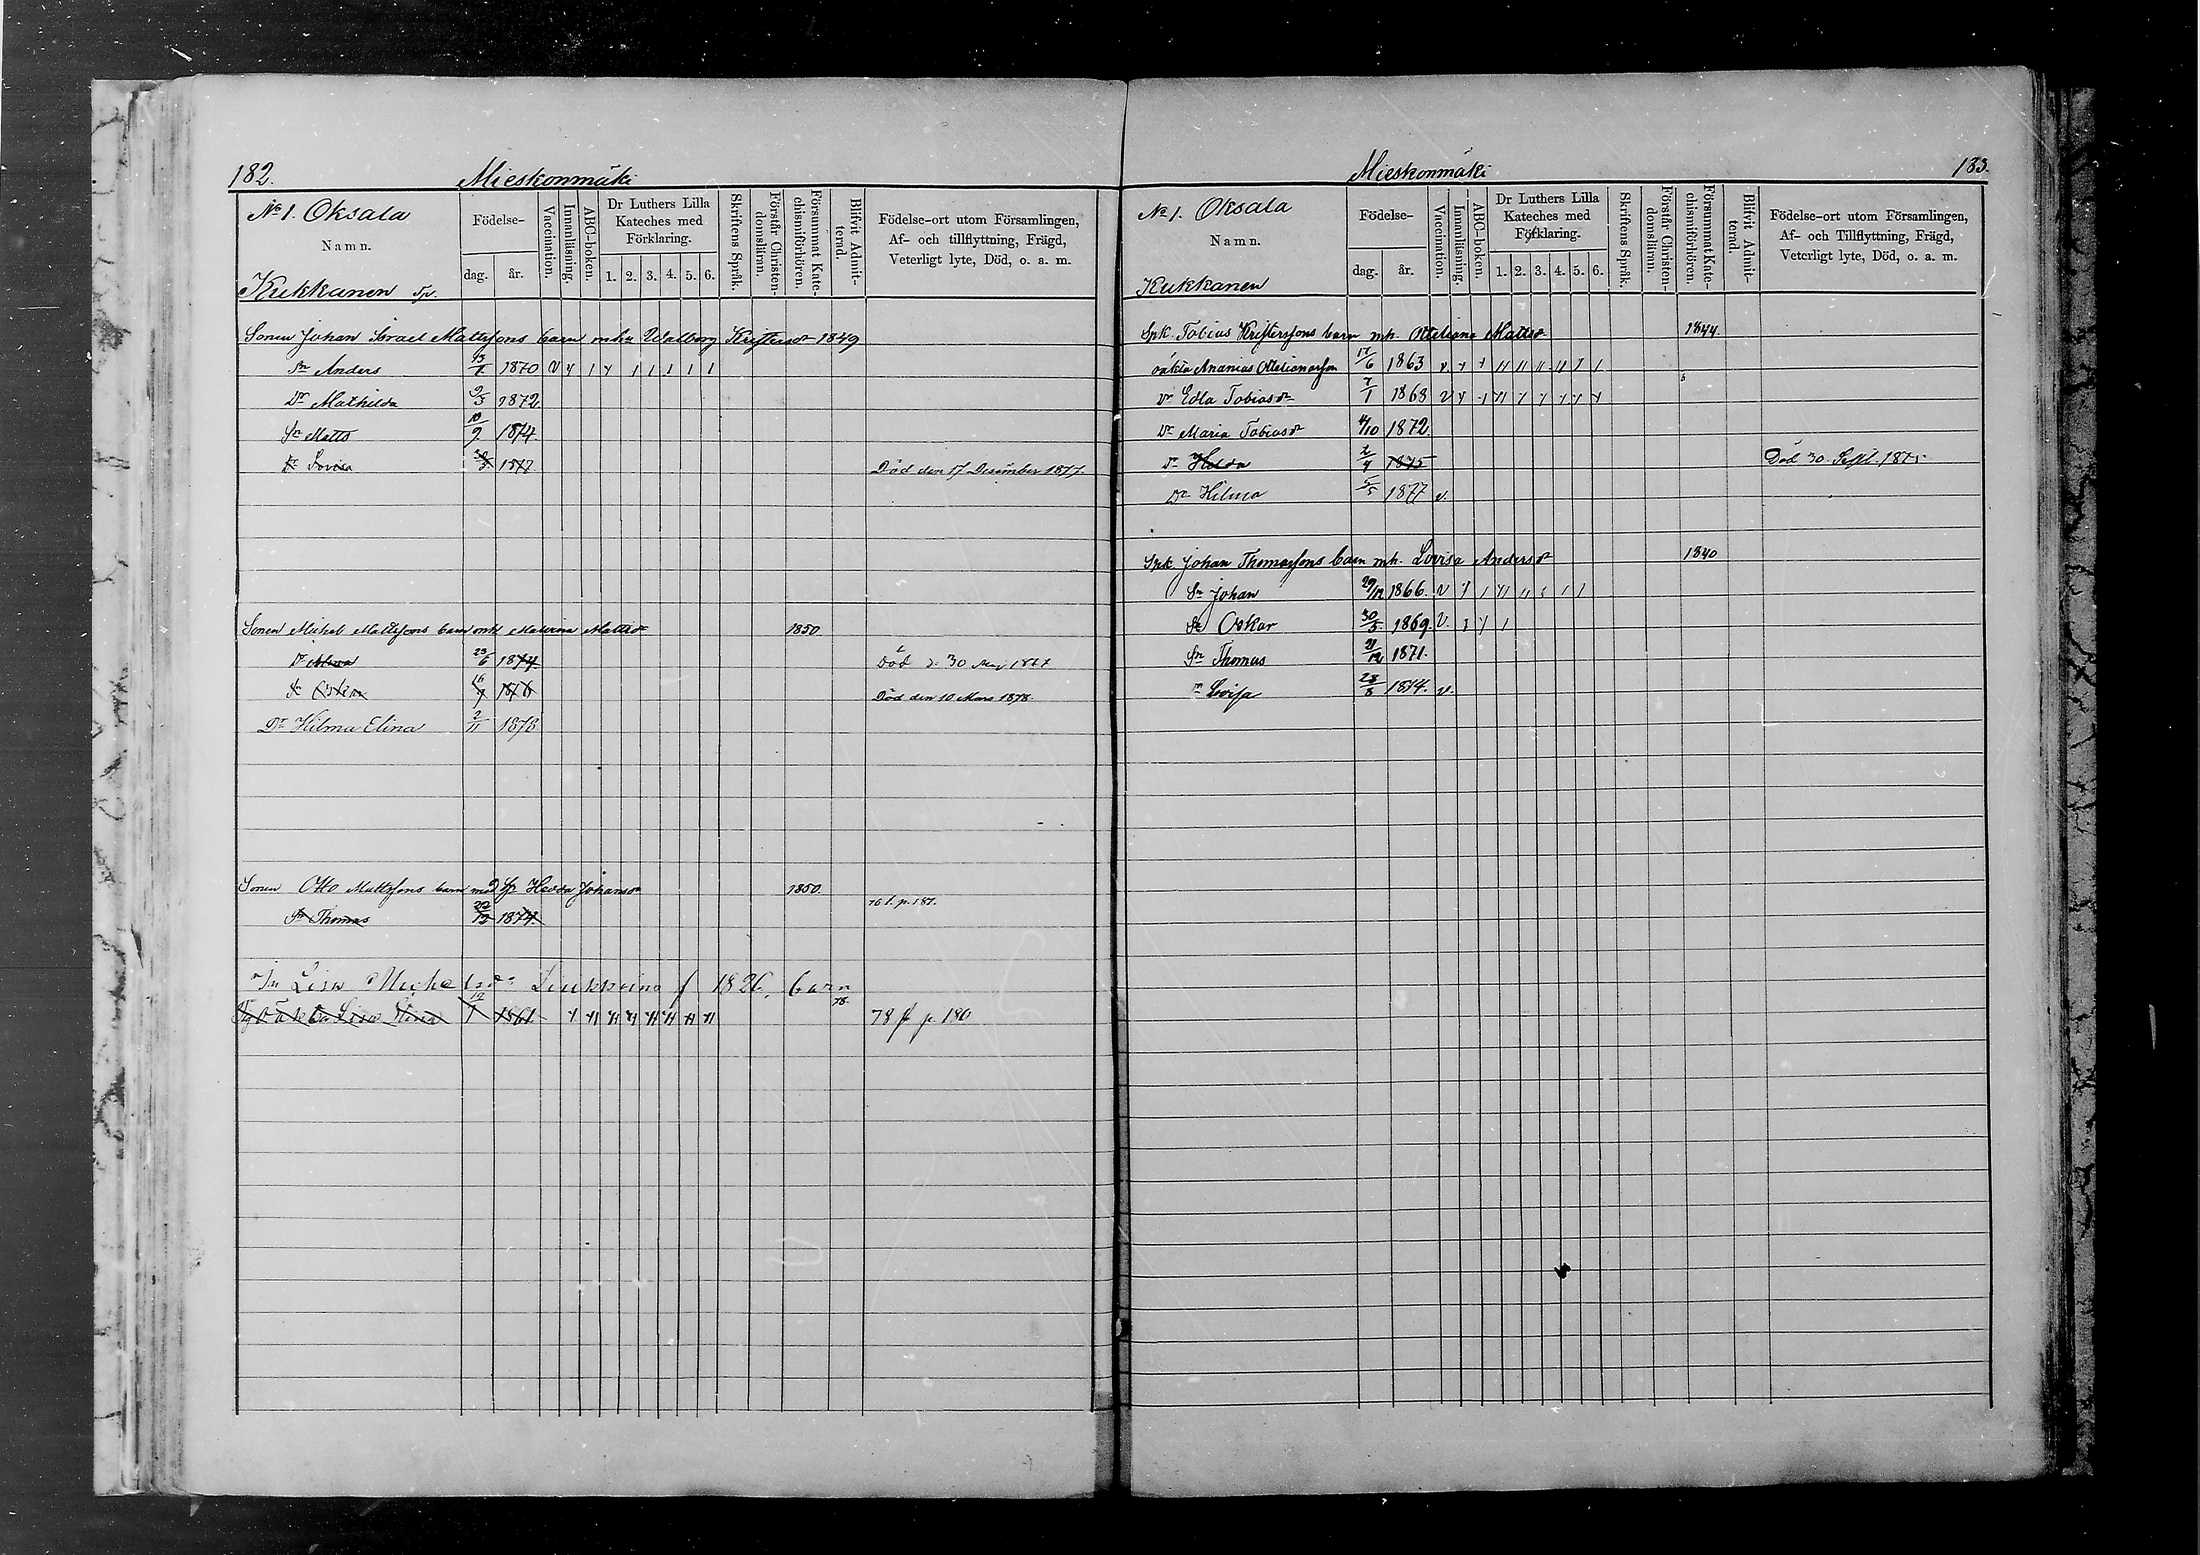 182. Mieskonmäki
No 1. Oksala
Namn.
Kukkanen
Födelse-
dag. år.
Vaccination.
Innanläsning.
ABC-boken.
Dr Luthers Lilla
Kateches med
Förklaring.
1. 2. 3. 4. 5. 6.
Skriftens Språk.
Förstår Christen-
domsläran.
Försummat Kate-
chismiförhören.
Blifvit Admit-
terad.
Födelse-ort utom Församlingen,
Af- och tillflyttning, Frägd,
Veterligt lyte, Död, o. a. m.
Sonen Johan Israel Mattssons barn mhu Walborg Kristersdr 1849
Sn Anders 13/1 1870 v
Dr Mathilda 9/3 1872
Sn Matts 10/9 1874
Dr Lovisa 1877 Död den 17 December 1877.
Sonen Michel Mattssons barn mh Mattsdr 1850
Dr Alma 23/6 1874 Död d. 30 1877
Sn 16/9 1876 Död den 10 Mars 1878.
Dr Hilma Elina 2/11 1878
Sonen Otto Mattssons barn med Hedda Johansdr 1850.
Sn Thomas 22/12 1874. 76 f. p. 181.
Lisa 1826, barn
Lisa Stina 1861 78.
78 f p. 180
Mieskonmäki 183.
No 1. Oksala
Namn.
Kukkanen
Födelse-
dag. år.
Vaccination.
Innanläsning.
ABC-boken.
Dr Luthers Lilla
Kateches med
Förklaring.
1. 2. 3. 4. 5. 6.
Skriftens Språk.
Förstår Christen-
domsläran.
Försummat Kate-
chismiförhören.
Blifvit Admit-
terad.
Födelse-ort utom Församlingen,
Af- och Tillflyttning, Frägd,
Veterligt lyte, Död, o. a. m.
Spk Tobias Kristerssons barn mh. Otteliana Mattsdr 1844.
oäkta Ananias Ottelianasson 17/6 1863
Dr Edla Tobiasdr 7/1 1868 v
Dr Maria Tobiasdr 4/10 1872.
Dr Hilda 2/4 1875 Död 30 Sept. 1875
Dr Hilma 5/5 1877 v.
Spk Johan Thomassons barn mh. Lovisa Andersdr 1840
Sn Johan 29/12 1866. v
Sn Oskar 30/5 1869. v.
Sn Thomas 21/12 1871.
Dr Lovisa 28/8 1874. v.